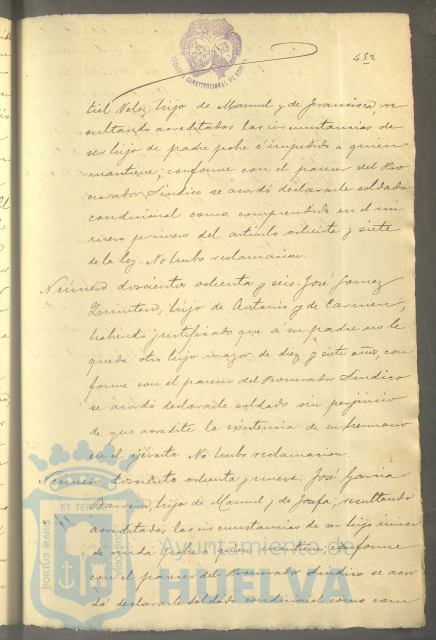 452
tiel Velez, hijo de Manuel y de Francisca, re
sultando acreditadas las circunstancias de
ser hijo de padre pobre é impedido á quien
mantiene; conforme con el parecer del Pro
curador Síndico se acordó declararle soldado
condicional como comprendido en el nú
mero primero del artículo ochenta y siete
de la ley. No hubo reclamacion.
Número doscientos ochenta y seis. José Gomez
hijo de Antonio y de Carmen,
habiendo justificado que a su padre no le
queda otro hijo mayor de diez y siete años, con
forme con el parecer del Procurador Síndico
se acordó declararle soldado sin perjuicio
de que acredite la existencia de su hermano
en el ejército. No hubo reclamacion.
Número doscientos ochenta y nueve. José Garcia
Barrera, hijo de Manuel y de Josefa, resultando
acreditadas las circunstancias de ser hijo unico
de viuda pobre a quien mantiene, conforme
con el parecer del Procurador Síndico se acor
dó declararle soldado condicional como com
PORTUS MARIS ET TERRAE CUSTODIA
Ayuntamiento de
HUELVA